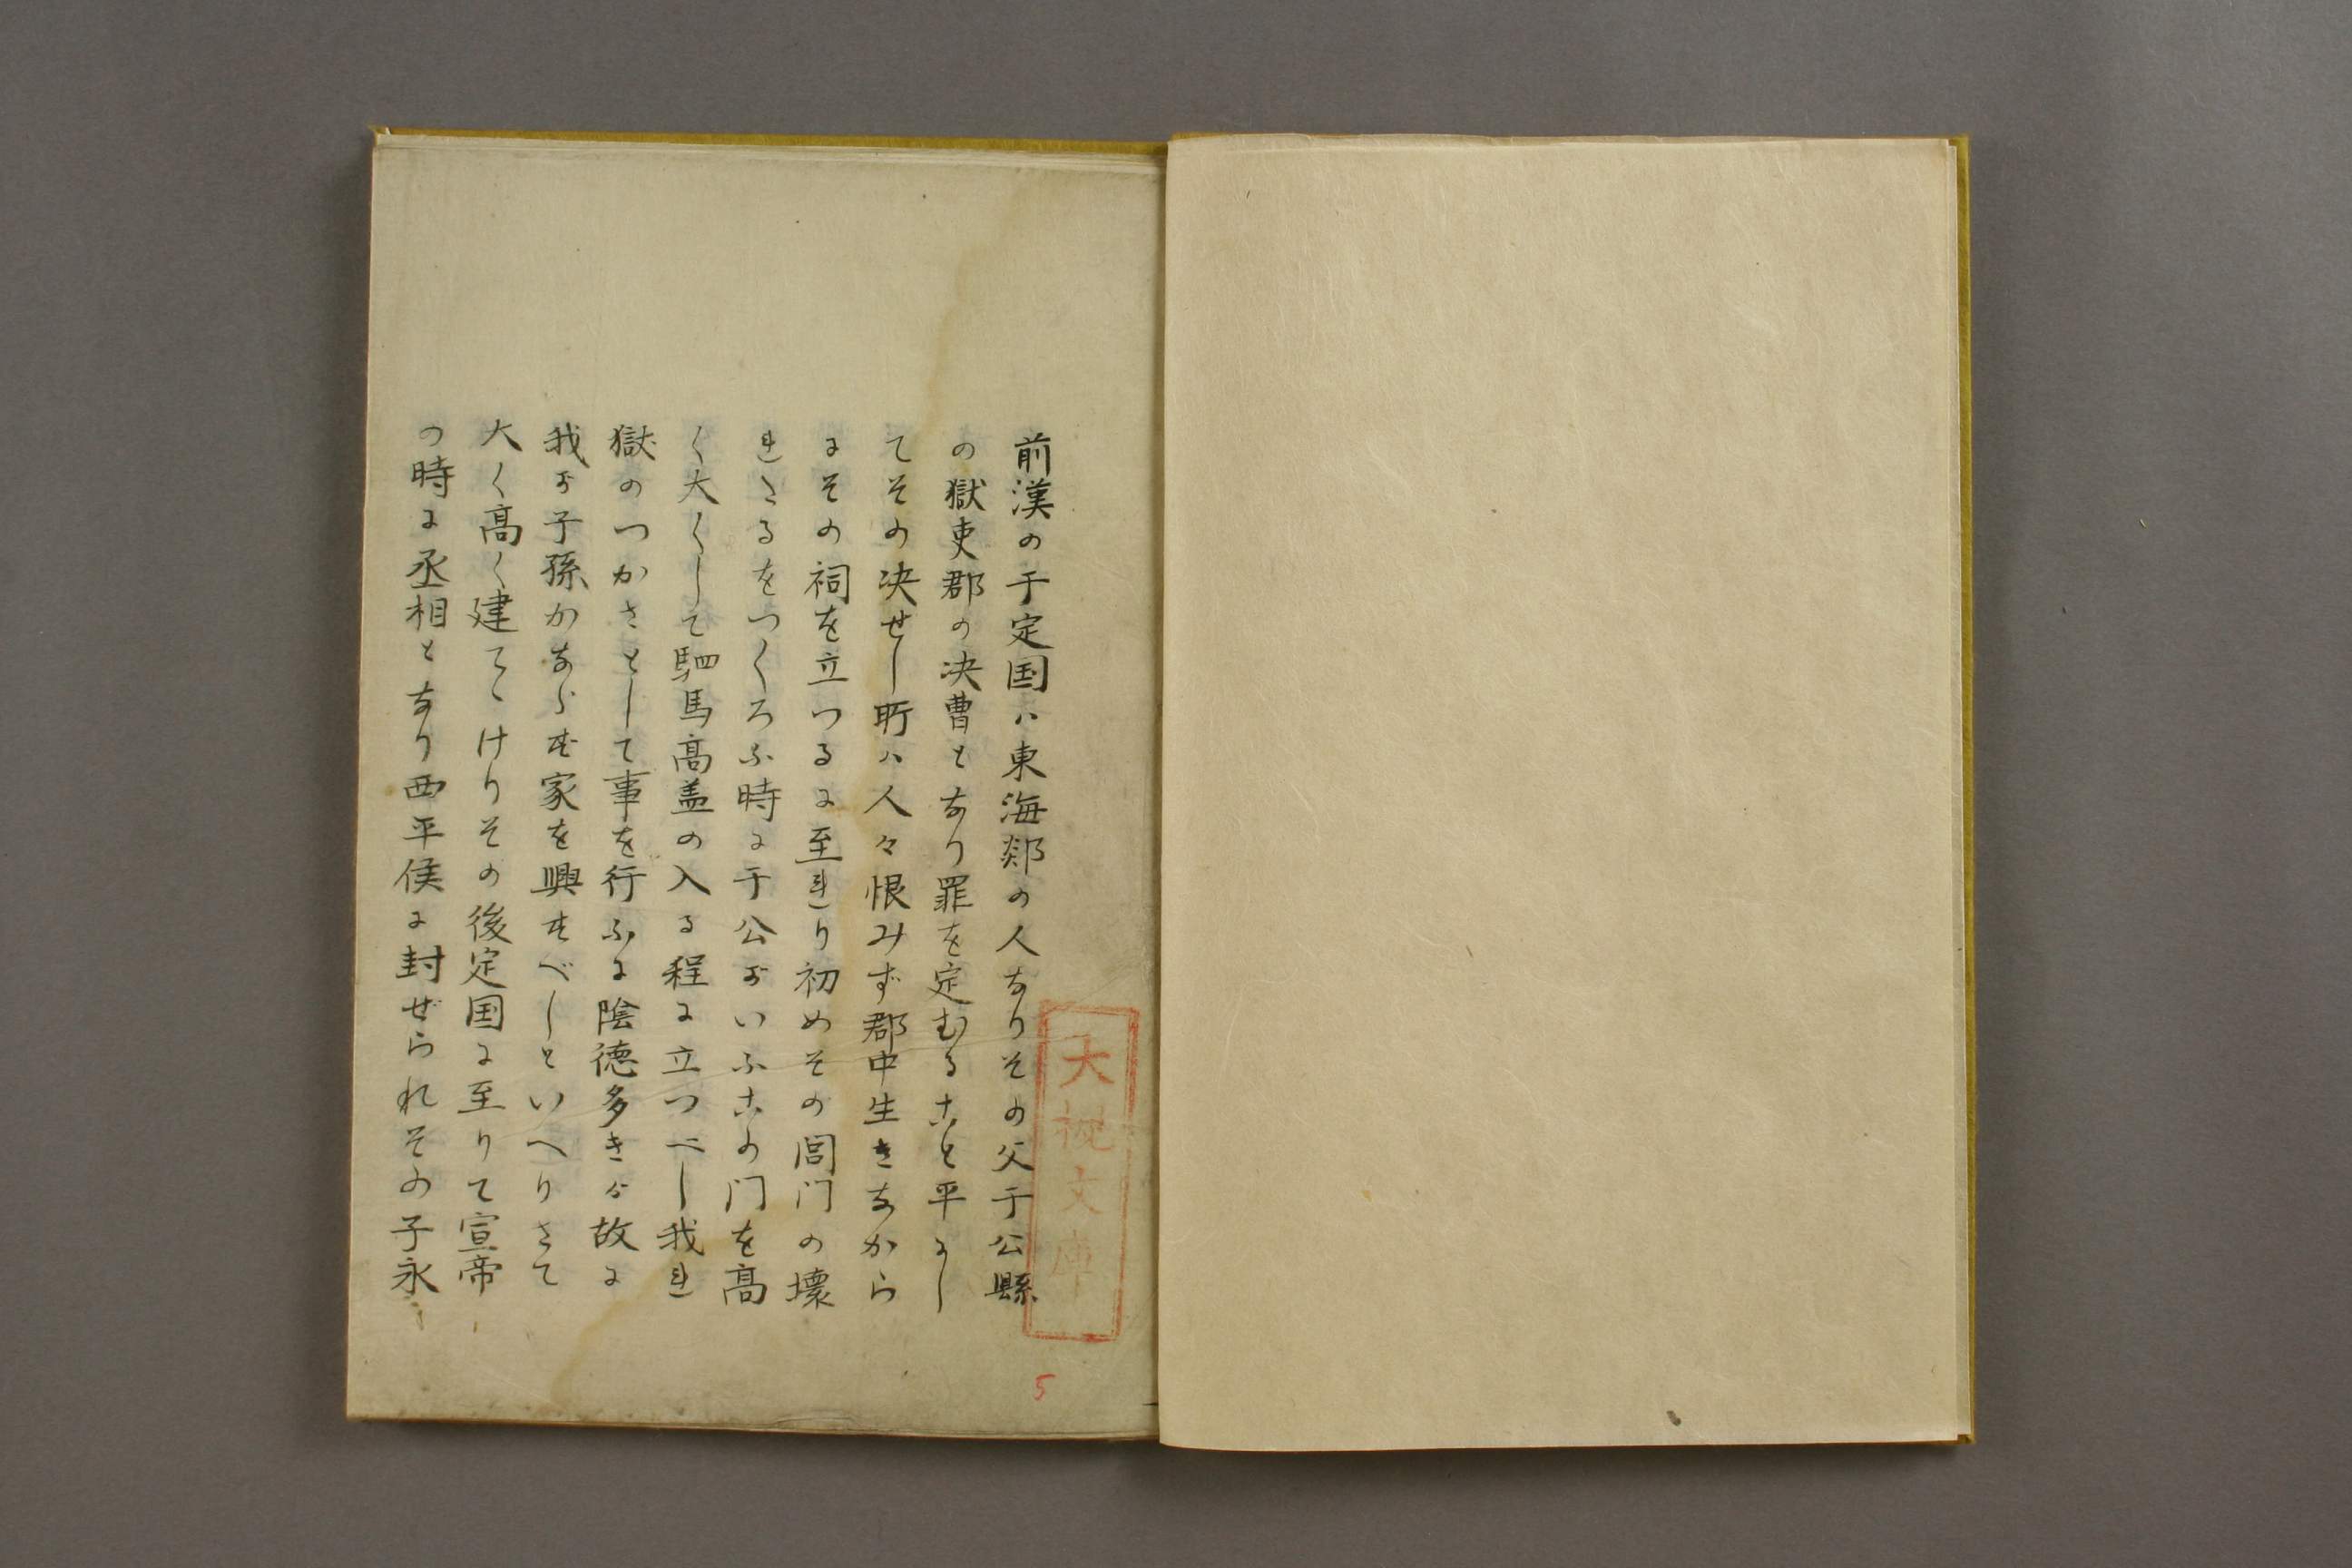 前漢の于定国ハ東海郯の人なりその父于公縣
の獄吏郡の决曹となり罪を定むること平にし
てその决せし所ハ人々恨みず郡中生きなから
にその祠を立つるに至れり初めその閭门の壊
れたるをつくろふ時に于公がいふこの门を高
く大くして駟馬高盖の入る程に立つべし我れ
獄のつかさとして事を行ふに陰徳多きが故に
我が子孫かならず家を興すべしといへりさて
大く高く建てゝけりその後定国に至りて宣帝
の時に丞相となり西平侯に封ぜられその子永
大
文庫
5